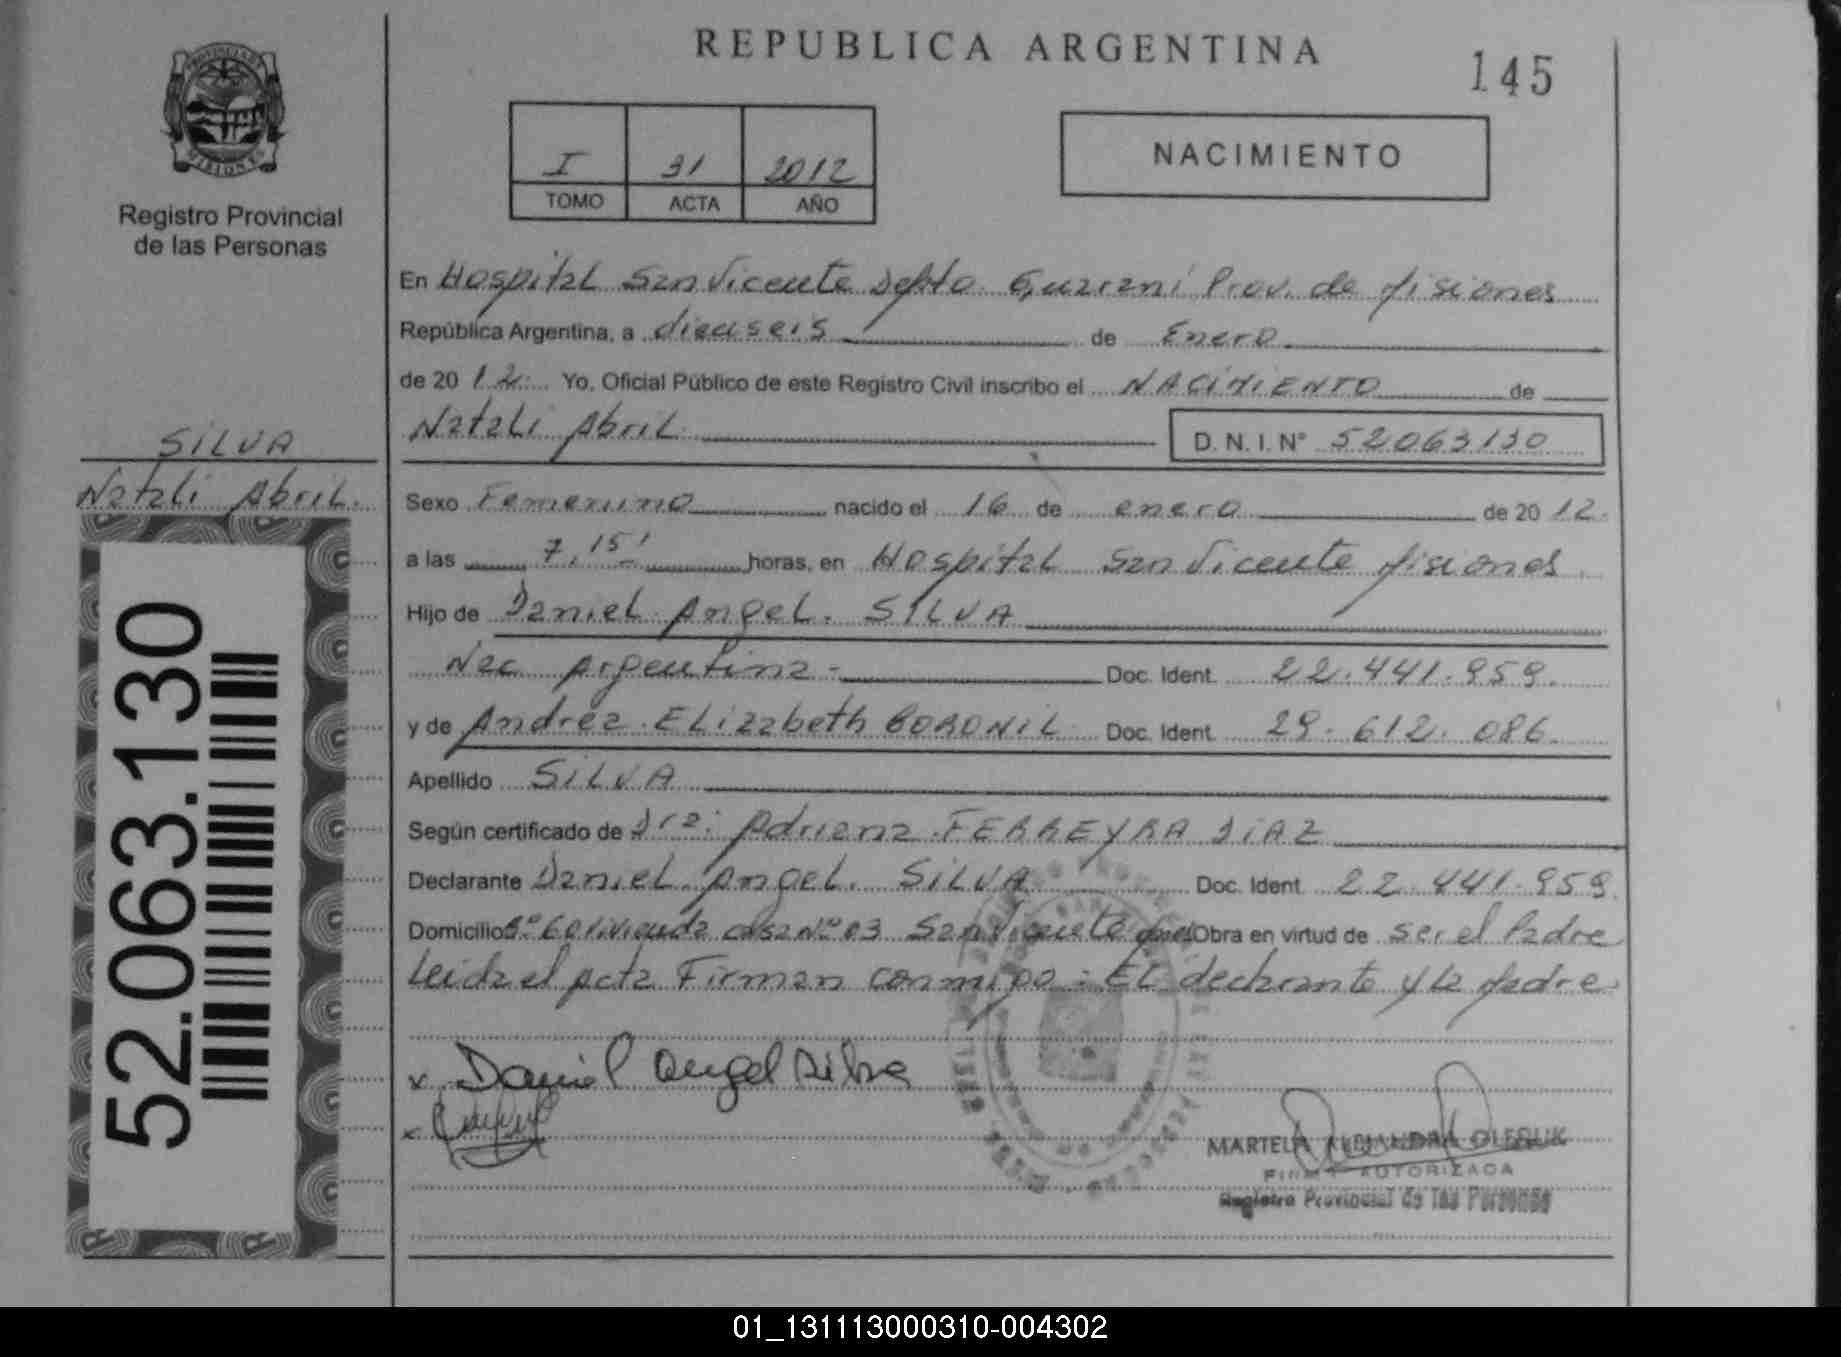 REPUBLICA ARGENTINA
145
PROVINCIA DE
MISIONES
Registro Provincial
de las Personas
I 31 2012
TOMO ACTA AÑO
NACIMIENTO
En Hospital San Vicente Depto. Guarani Prov. de Misiones
República Argentina, a dieciseis de Enero
de 2012. Yo, Oficial Público de este Registro Civil inscribo el NACIMIENTO de
Natali Abril D.N.I. Nº 52063130
SILVA
Natali Abril.
Sexo Femenino nacido el 16 de enero de 2012.
a las 7,15' horas, en Hospital San Vicente Misiones.
Hijo de Daniel Angel. SILVA
Nac Argentina - Doc. Ident. 22.441.959.
y de Andrea Elizabeth BORONIL Doc. Ident. 29.612.086.
Apellido SILVA
Según certificado de Dra: Adriana FERREYRA DIAZ
Declarante Daniel Angel. SILVA Doc. Ident. 22.441.959.
Domicilio Bº 60 Vivienda casa Nº 03 San Vicente Obra en virtud de ser el Padre
Leida el acta Firman conmigo: El declarante y la Madre
52.063.130
x Daniel angel Silva
x
MARTELA ALEJANDRA
FIRMA AUTORIZADA
Registro Provincial de las Personas
01_131113000310-004302